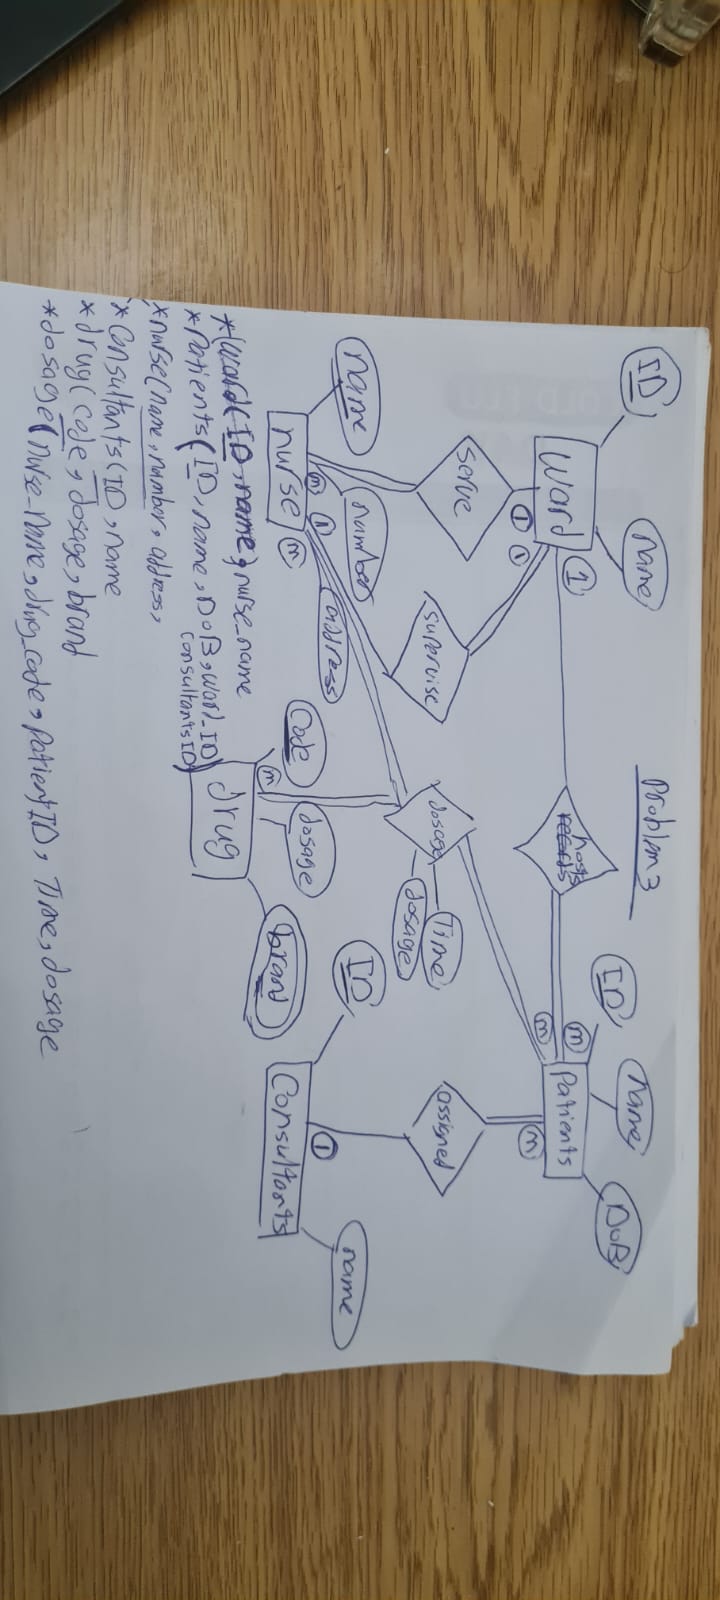 Problem 3
ID
name
ID
name
DoB
ward
1
hosts
records
m
Patients
m
m
1
1
serve
supervise
dosage
Time
dosage
assigned
name
number
address
ID
name
m
1
m
nurse
Code
dosage
brand
1
Consultants
m
drug
*(ward(ID, name), nurse_name
*Patients(ID, name, DoB, ward_ID)
consultantsID)
*nurse(name, number, address,
*Consultants(ID, name
*drug(code, dosage, brand
*dosage(nurse_name, drug_code, patientID, Time, dosage